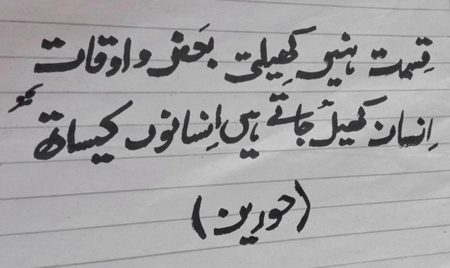 قسمت ہنیں کھیلتی بعض و اوقات
انسان کھیل جاتے ہیں انسانوں کیساتھ
(حورین)